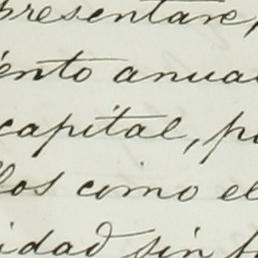 presentare,
iento anual
capital, po
llos como el
idad sin